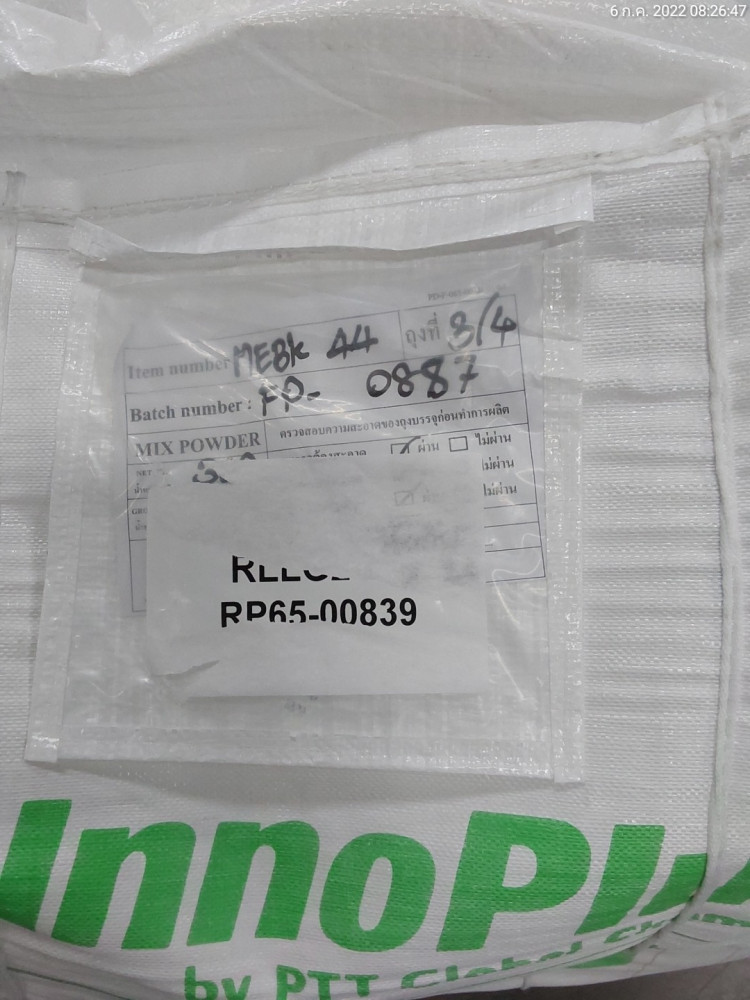 6 ก.ค. 2022 08:26:47
Item number MEBK 44 ถุงที่ 3/4
Batch number : FP- 0887
MIX POWDER ตรวจสอบความสะอาดของถุงบรรจุก่อนทำการผลิต
ผ่าน ไม่ผ่าน
ไม่ผ่าน
ไม่ผ่าน
RP65-00839
InnoPlu
by PTT Global Chem